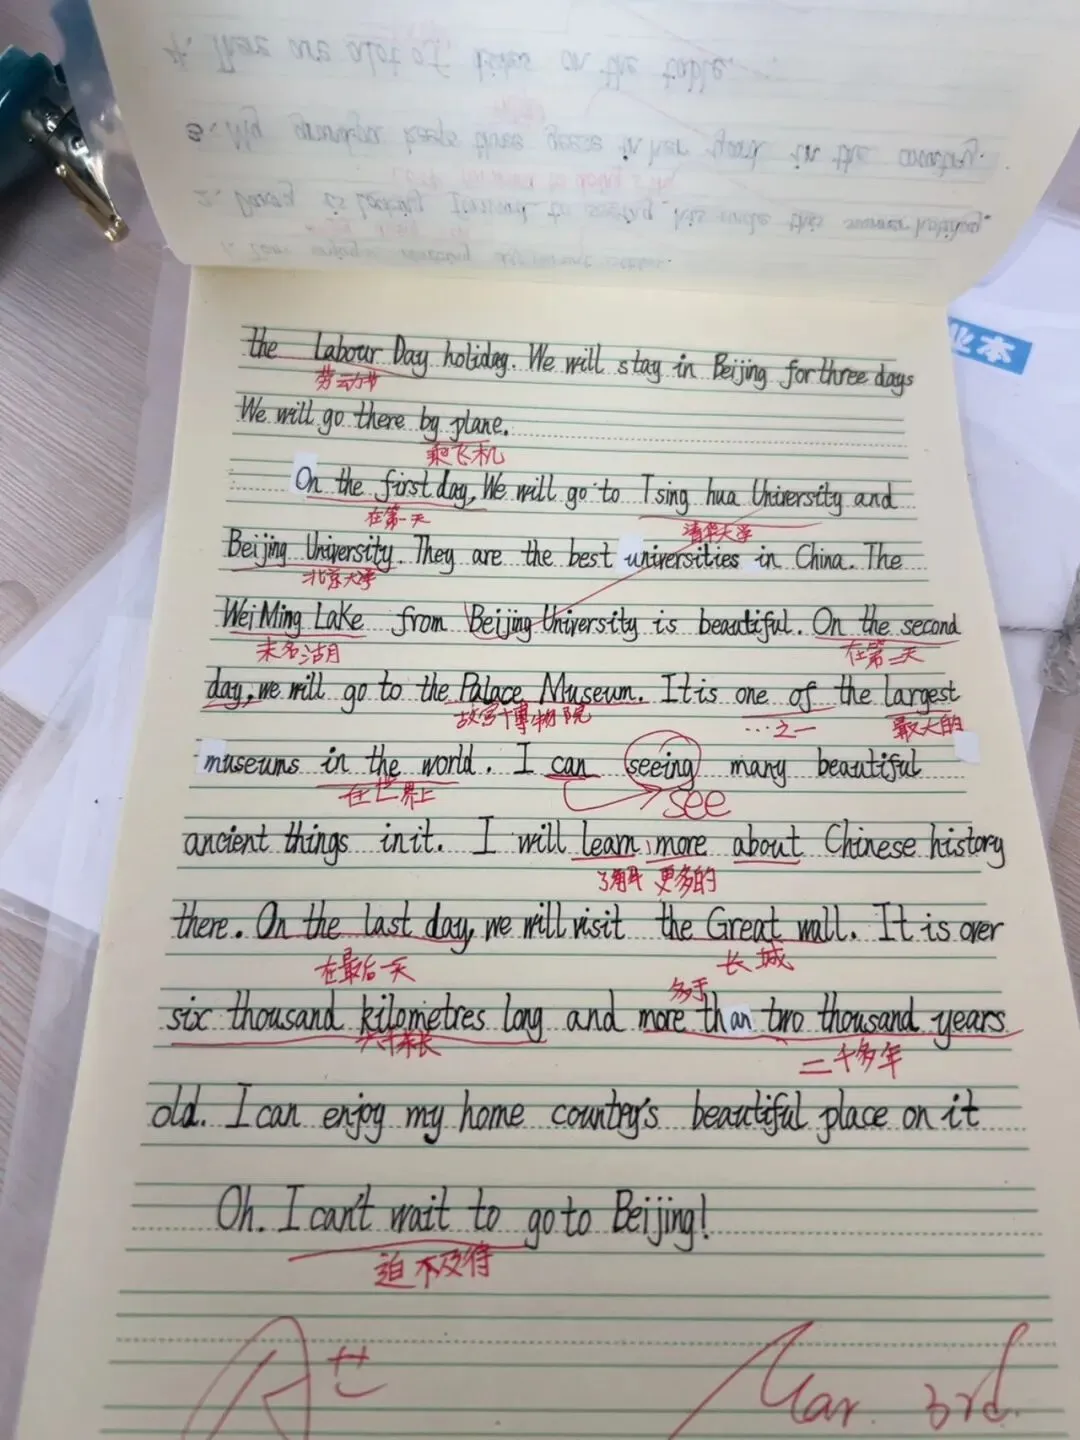 4. There are alot of dishes on the table.
3. My grandpa keeps three geese in her yard in the country.
2. is looking forward to seeing his uncle this summer holiday.
业本
the Labour Day holiday. We will stay in Beijing for three days
劳动节
We will go there by plane.
乘飞机
On the first day, We will go to Tsing hua University and
在第一天
清华大学
Beijing University. They are the best universities in China. The
北京大学
Wei Ming Lake from Beijing University is beautiful. On the second
未名湖
在第二天
day, we will go to the Palace Museum. It is one of the largest
故宫博物院
...之一
最大的
museums in the world. I can seeing many beautiful
在世界上
see
ancient things in it. I will learn more about Chinese history
了解 更多的
there. On the last day, we will visit the Great wall. It is over
在最后一天
长城
多于
six thousand kilometres long and more than two thousand years
六千米长
二千多年
old. I can enjoy my home country's beautiful place on it
Oh. I can't wait to go to Beijing!
迫不及待
A+
Mar. 3rd.